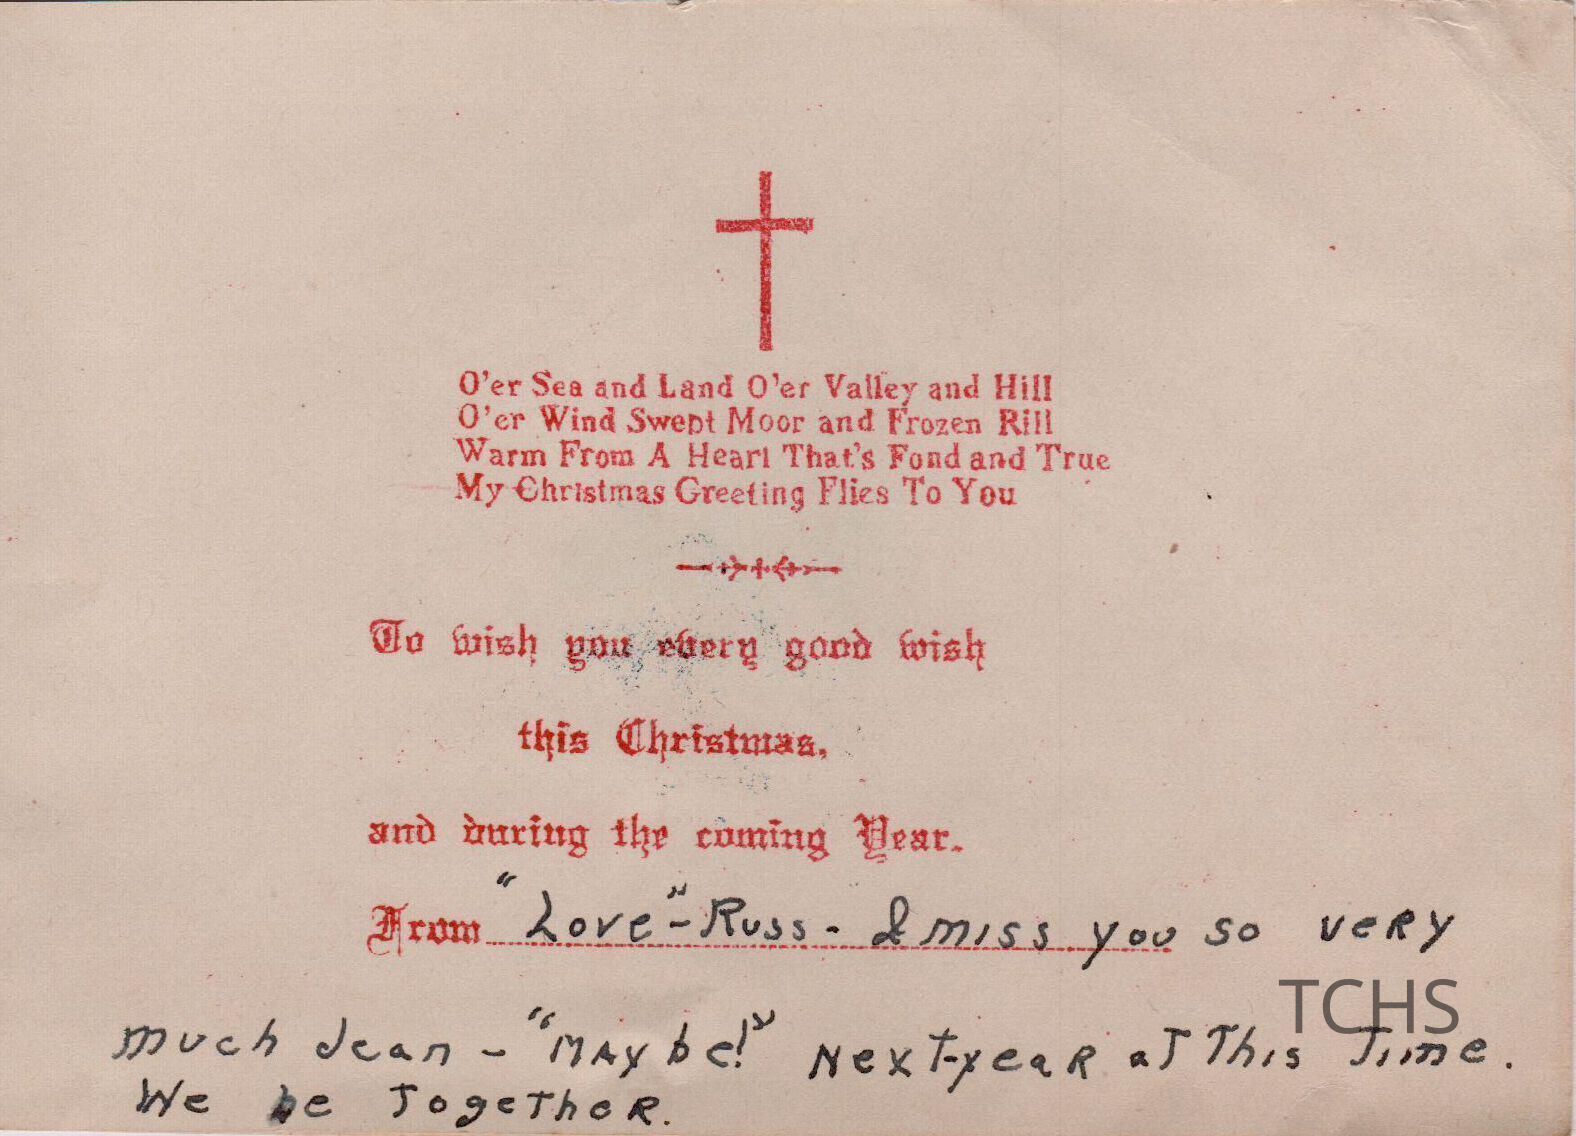 O'er Sea and Land O'er Valley and Hill
O'er Wind Swept Moor and Frozen Rill
Warm From A Heart That's Fond and True
My Christmas Greeting Flies To You
To wish you every good wish
this Christmas,
and during the coming Year.
From "Love" - Russ - I miss you so very
much Jean - "Maybe!" Next-year at This Time.
We be Together.
TCHS